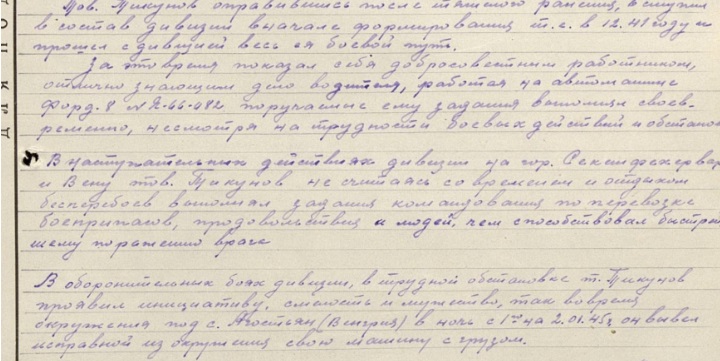 Тов. Тикунов оправившись после тяжелого ранения, вступил
в состав дивизии вначале формирования т.е. в 12.41 году и
прошел с дивизией весь ея боевой путь.
За это время показал себя добросовестным работником,
отлично знающим дело водителя, работая на автомашине
Форд-8 № Я-66-482 поручаемые ему задания выполнял своев-
ременно, несмотря на трудности боевых действий и обстанов
В наступательных действиях дивизии на гор. Секешфехервар
и Вену тов. Тикунов не считаясь со временем и отдыхом
бесперебоев выполнял задания командования по перевозке
боеприпасов, продовольствия и людей, чем способствовал быстрей-
шему поражению врага
В оборонительных боях дивизии, в трудной обстановке т. Тикунов
проявил инициативу, смелость и мужество, так во время
окружения под с. Агостьян (Венгрия) в ночь с 1го на 2.01.45г он вывел
исправной из окружения свою машину с грузом.
ДЛЯ ПОД